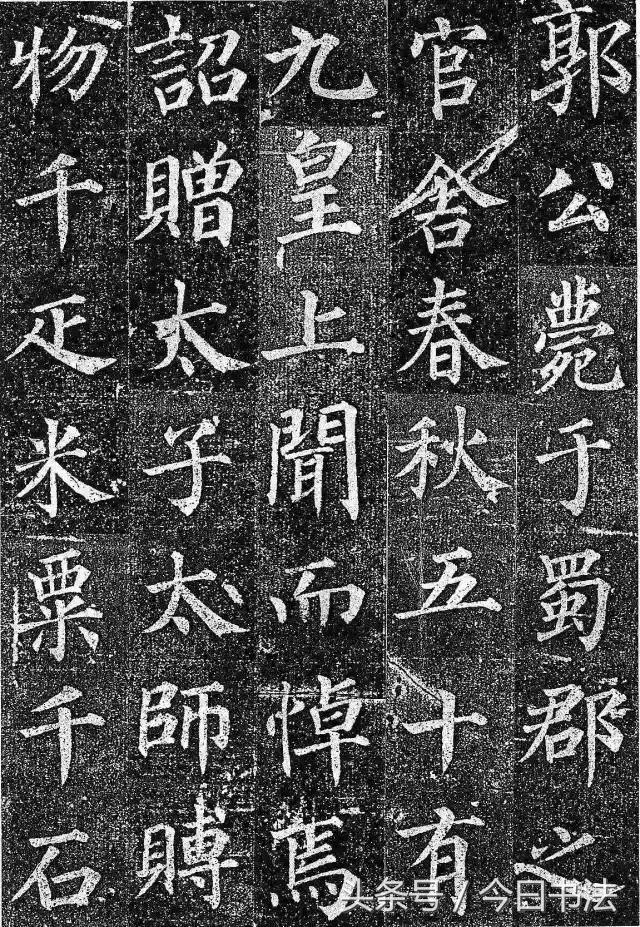 郭公薨于蜀郡之
官舍春秋五十有
九皇上聞而悼焉
詔贈太子太師賻
物千疋米粟千石
头条号 / 今日书法